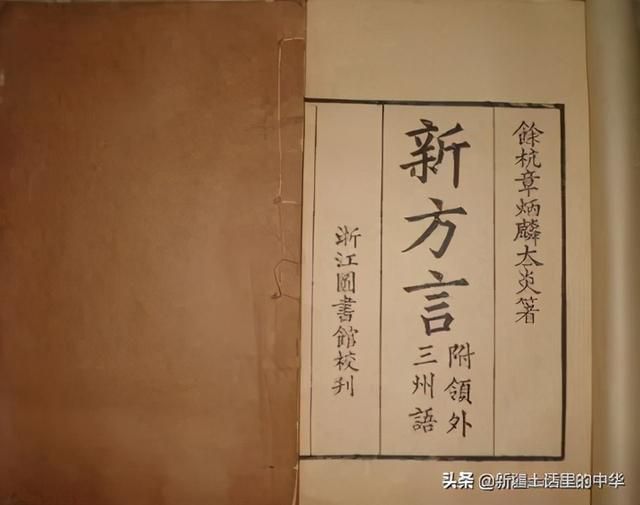 餘杭章炳麟太炎箸
新方言
附領外
三州語
浙江圖書館校刋
头条 @新疆土话里的中华